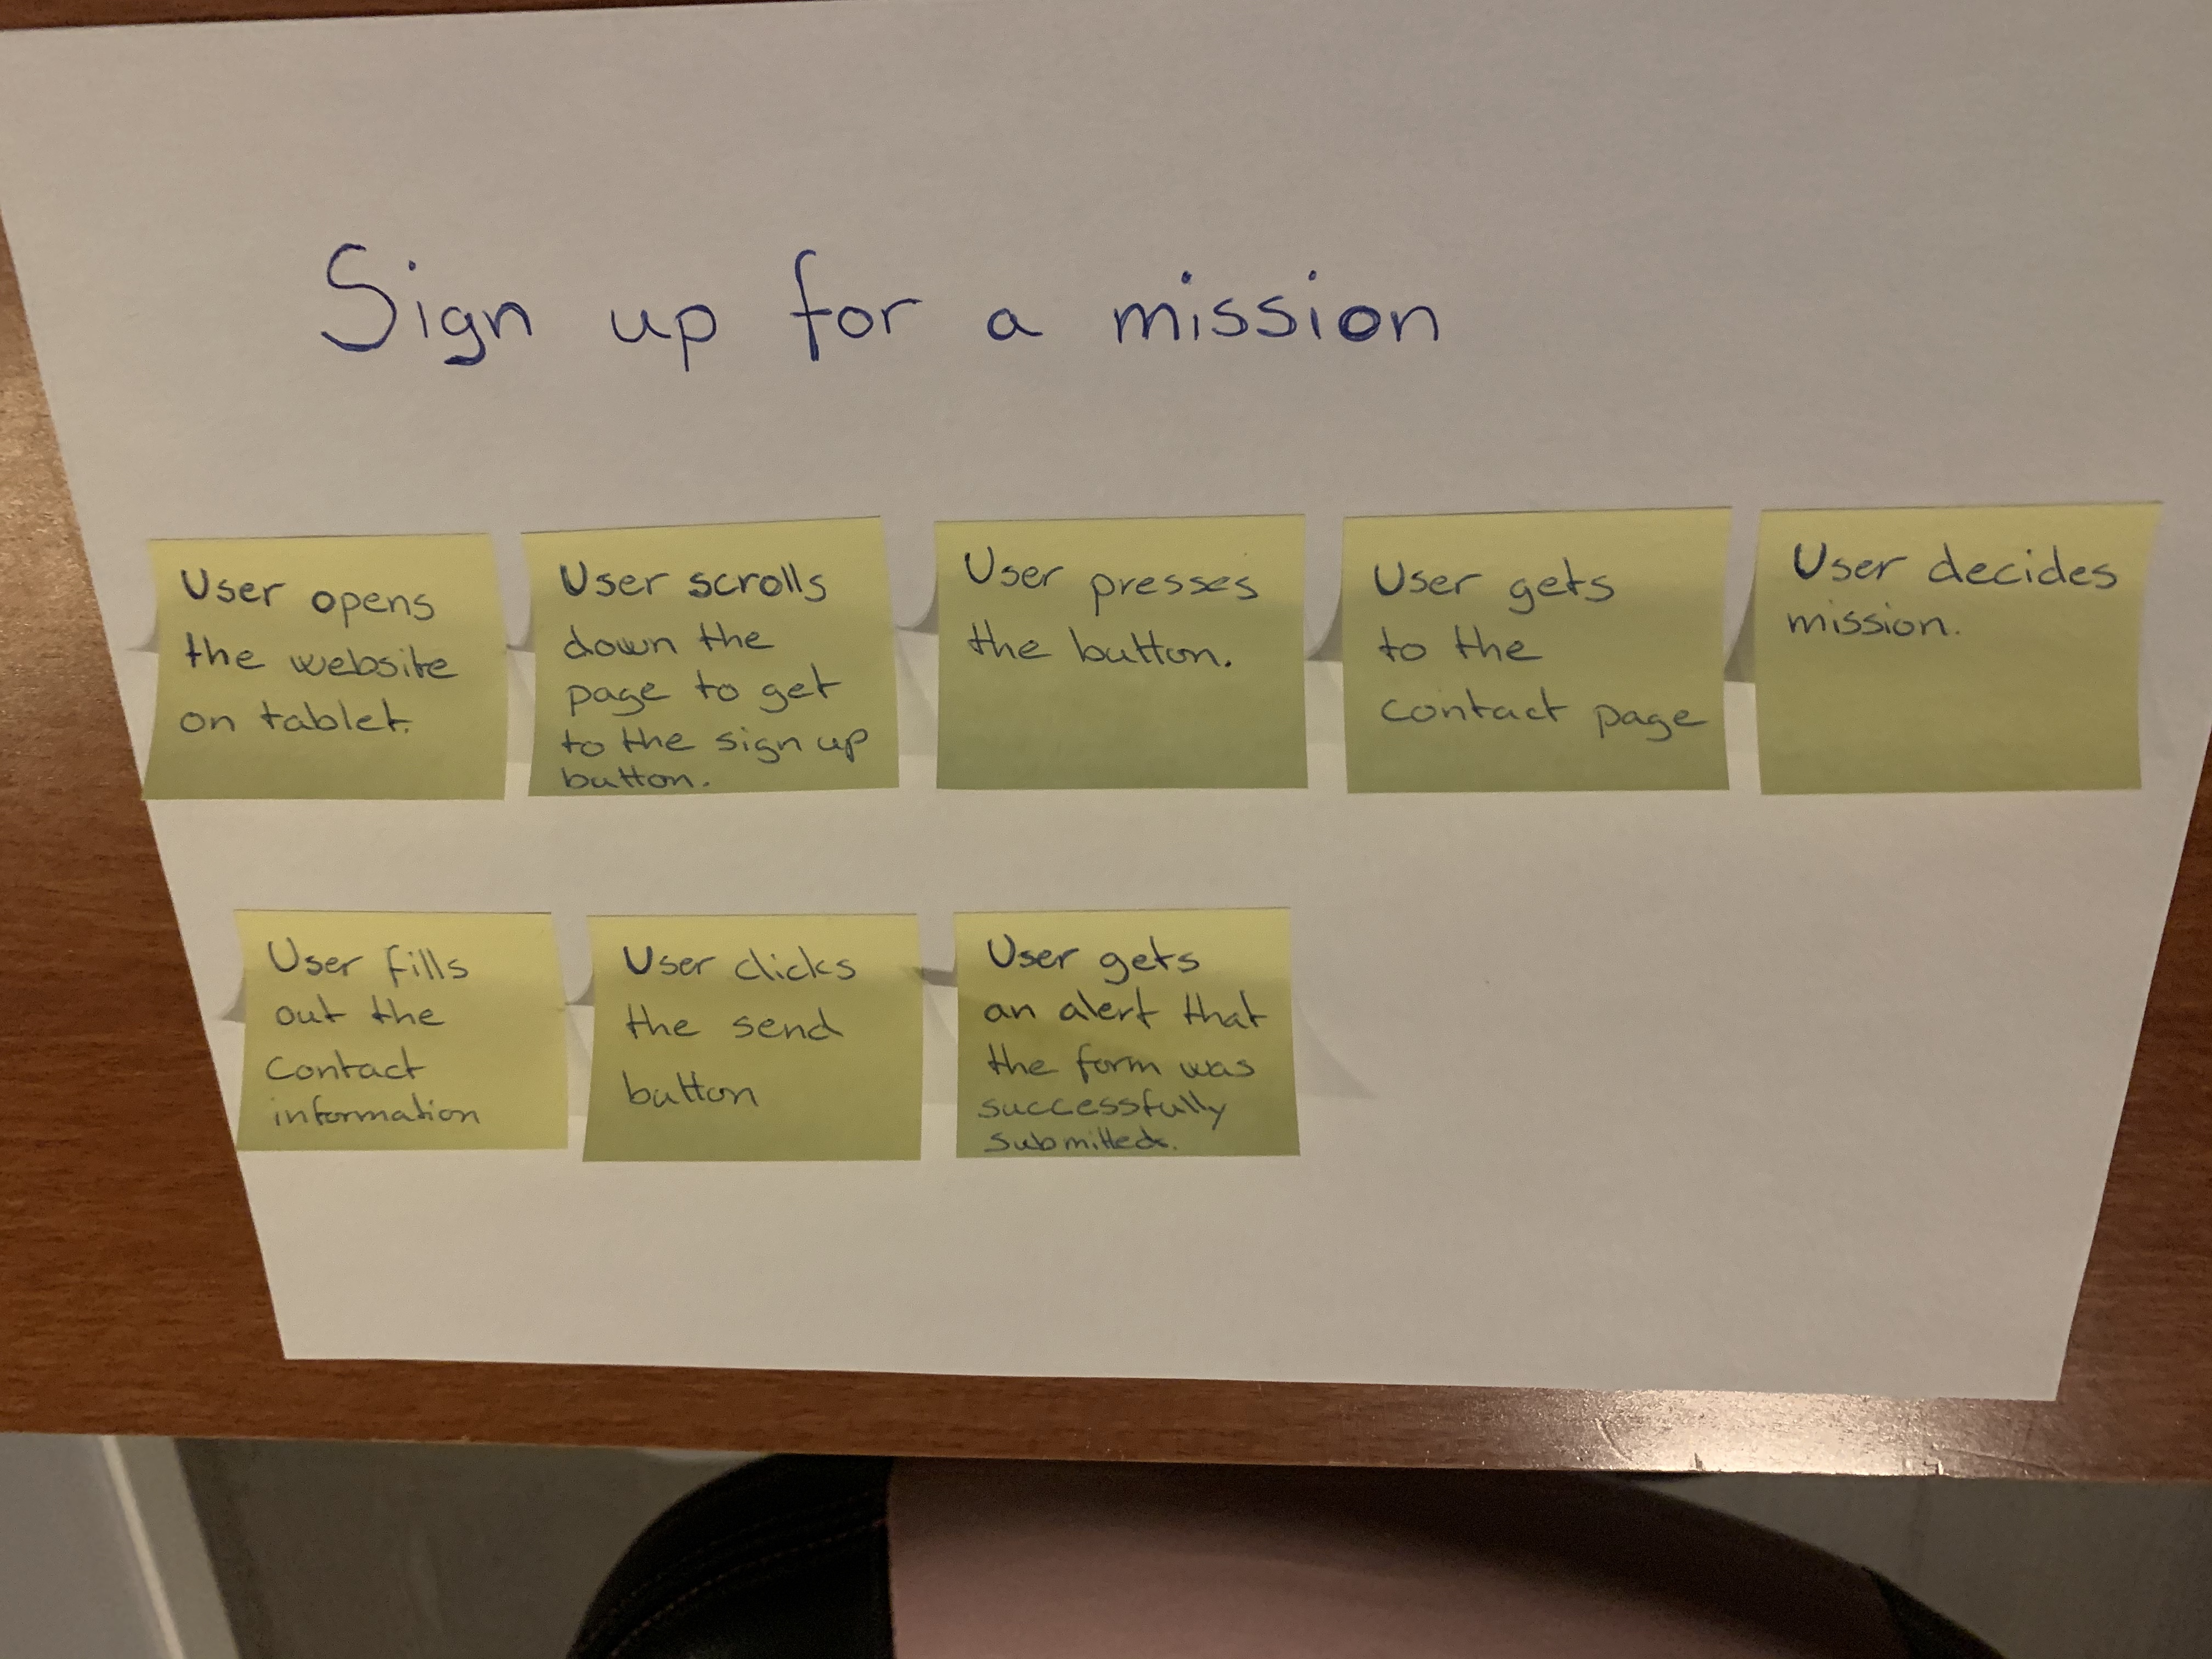 Sign up for a mission
User opens
the website
on tablet.
User scrolls
down the
page to get
to the sign up
button.
User presses
the button.
User gets
to the
contact page
User decides
mission.
User fills
out the
contact
information
User clicks
the send
button
User gets
an alert that
the form was
successfully
submitted.